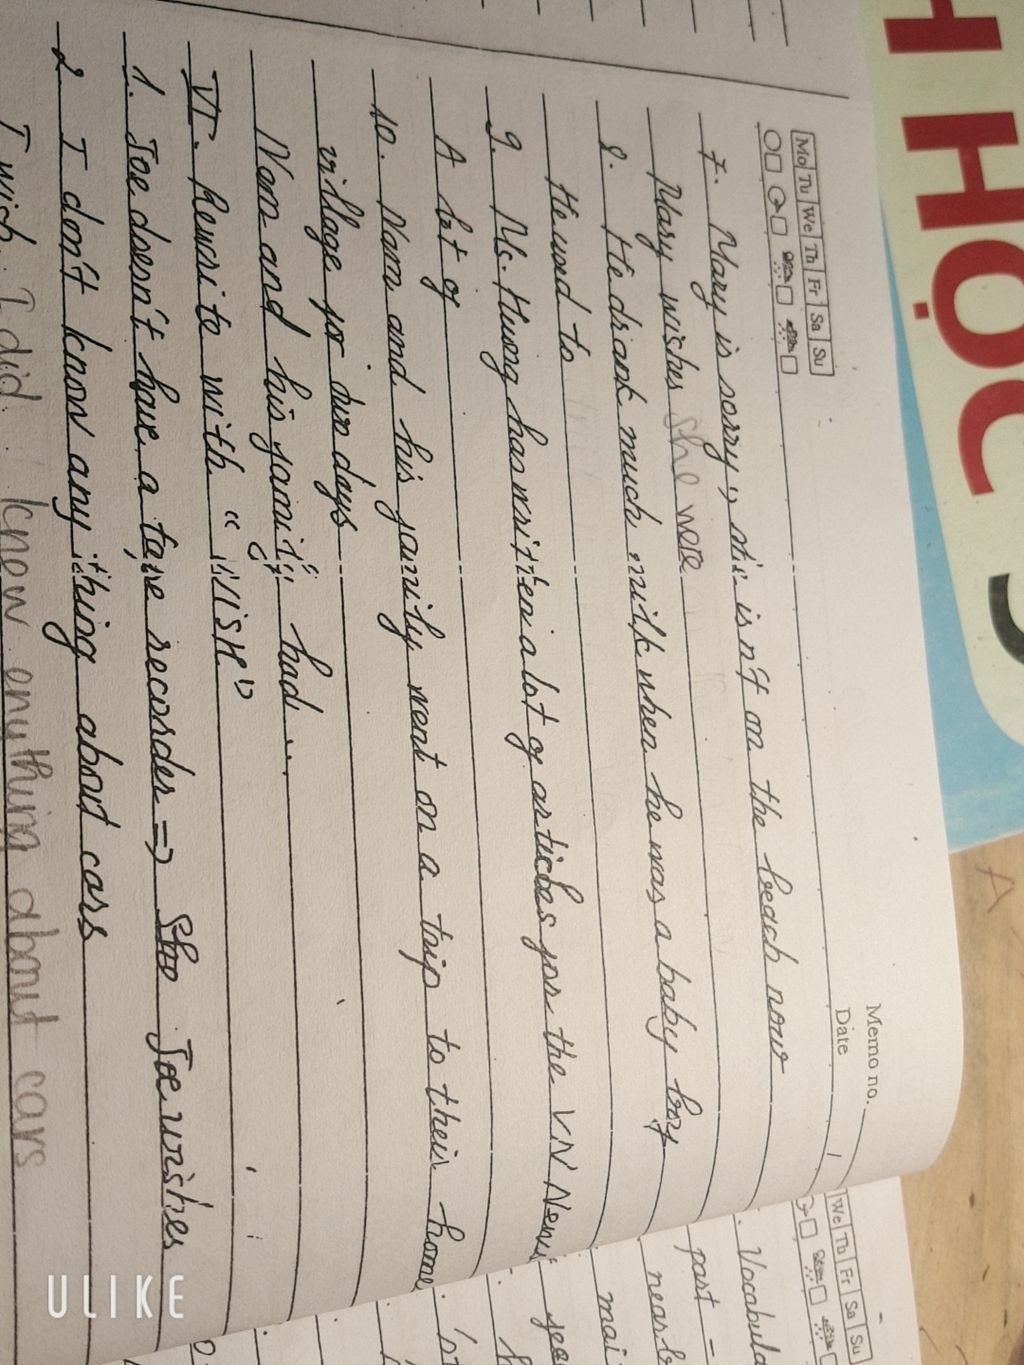 HỌC
Memo no.
Mo Tu We Th Fr Sa Su
Date / /
7. Mary is sorry, she isn't on the beach now
Mary wishes she were
8. He drank much milk when he was a baby boy
He used to
9. Ms. Huong has written a lot of articles for the VN News
A lot of
10. Nam and his family went on a trip to their home
village for two days
Nam and his family had ...
VI. Rewrite with "WISH"
1. Joe doesn't have a tape recorder => She Joe wishes
2 I don't know any thing about cars
I wish I did knew enything about cars
We Th Fr Sa Su
Vocabula
past -
near b
mai
ULIKE